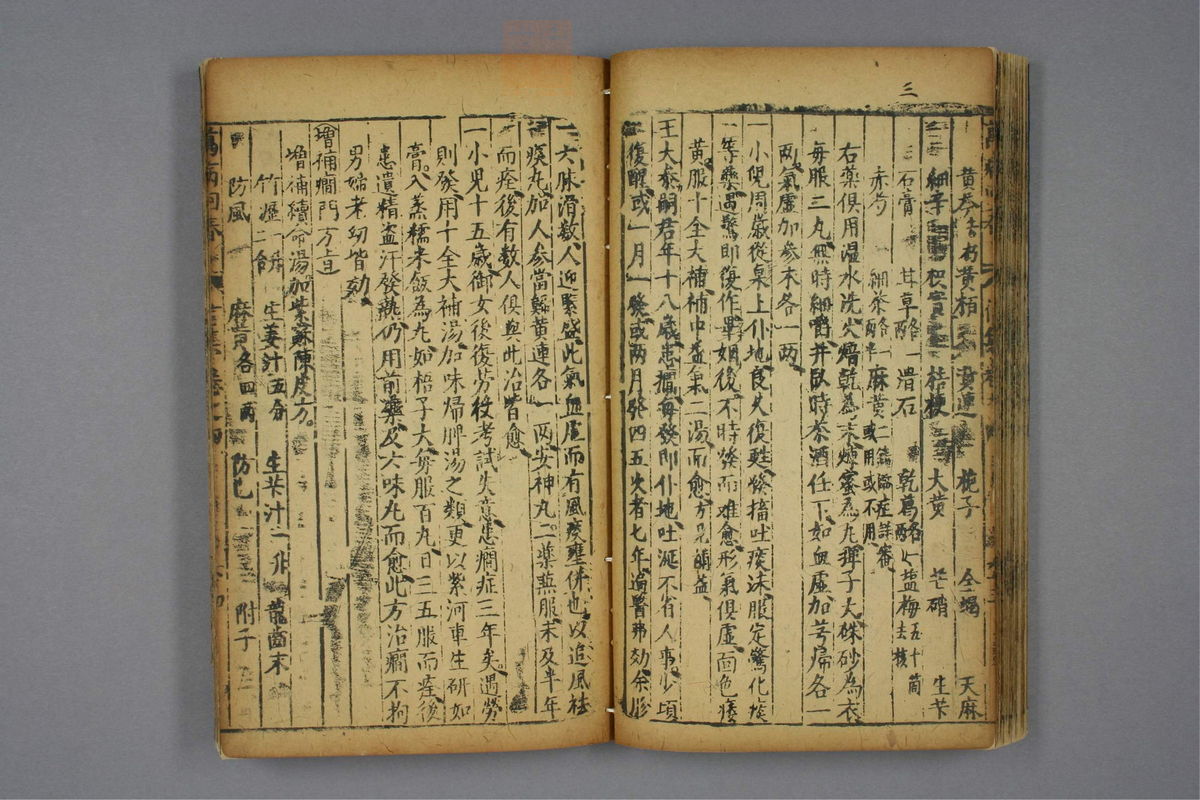 三
黄芩去朽 黄栢 黄連 梔子 全蝎 天麻
細辛 枳實 桔梗 大黄 芒硝 生芐
石膏 甘草 滑石 乾葛 塩梅五十箇去核
赤芍 細茶 麻黄 或用或不用 在詳審
右藥俱用温水洗火焙乾為末煉蜜為丸彈子大硃砂為衣
毎服二丸無時細嚼并臥時茶酒任下如血虛加芎㱕各一
两氣虛加參术各一两
一小児周歳從桌上仆地良久復甦發搐吐痰沫服定驚化痰
等藥遇驚即復作畢姻後不時發而难愈形氣俱虛面色痿
黄服十全大補補中益氣二湯而愈方見補益
王大參嗣君年十八歳患癎每發即仆地吐涎不省人事少頃
復醒或一月一發或两月 四五次者七年遍醫弗効余診
六脉滑数人迎緊盛此氣血虛而有風痰壅併也以追風祛
痰丸加人参當㱕黄連各一两安神丸二藥兼服未及半年
而痊後有数人俱與此治皆愈
一小児十五歳御女後復劳役考試失意患癎症三年矣遇勞
則發用十全大補湯加味㱕脾湯之類更以紫河車生研如
膏入蒸糯米飯為丸如梧子大每服百丸日三五服而痊後
患遺精盗汗發熱仍用前藥及六味丸而愈此方治癎不拘
男婦老幼皆効
增補癎門方
增補續命湯加紫蘇陳皮方
竹瀝一 生姜汁五分 生芐汁一升 龍齒末
防風 麻黄各四两 防己 附子
萬病回春